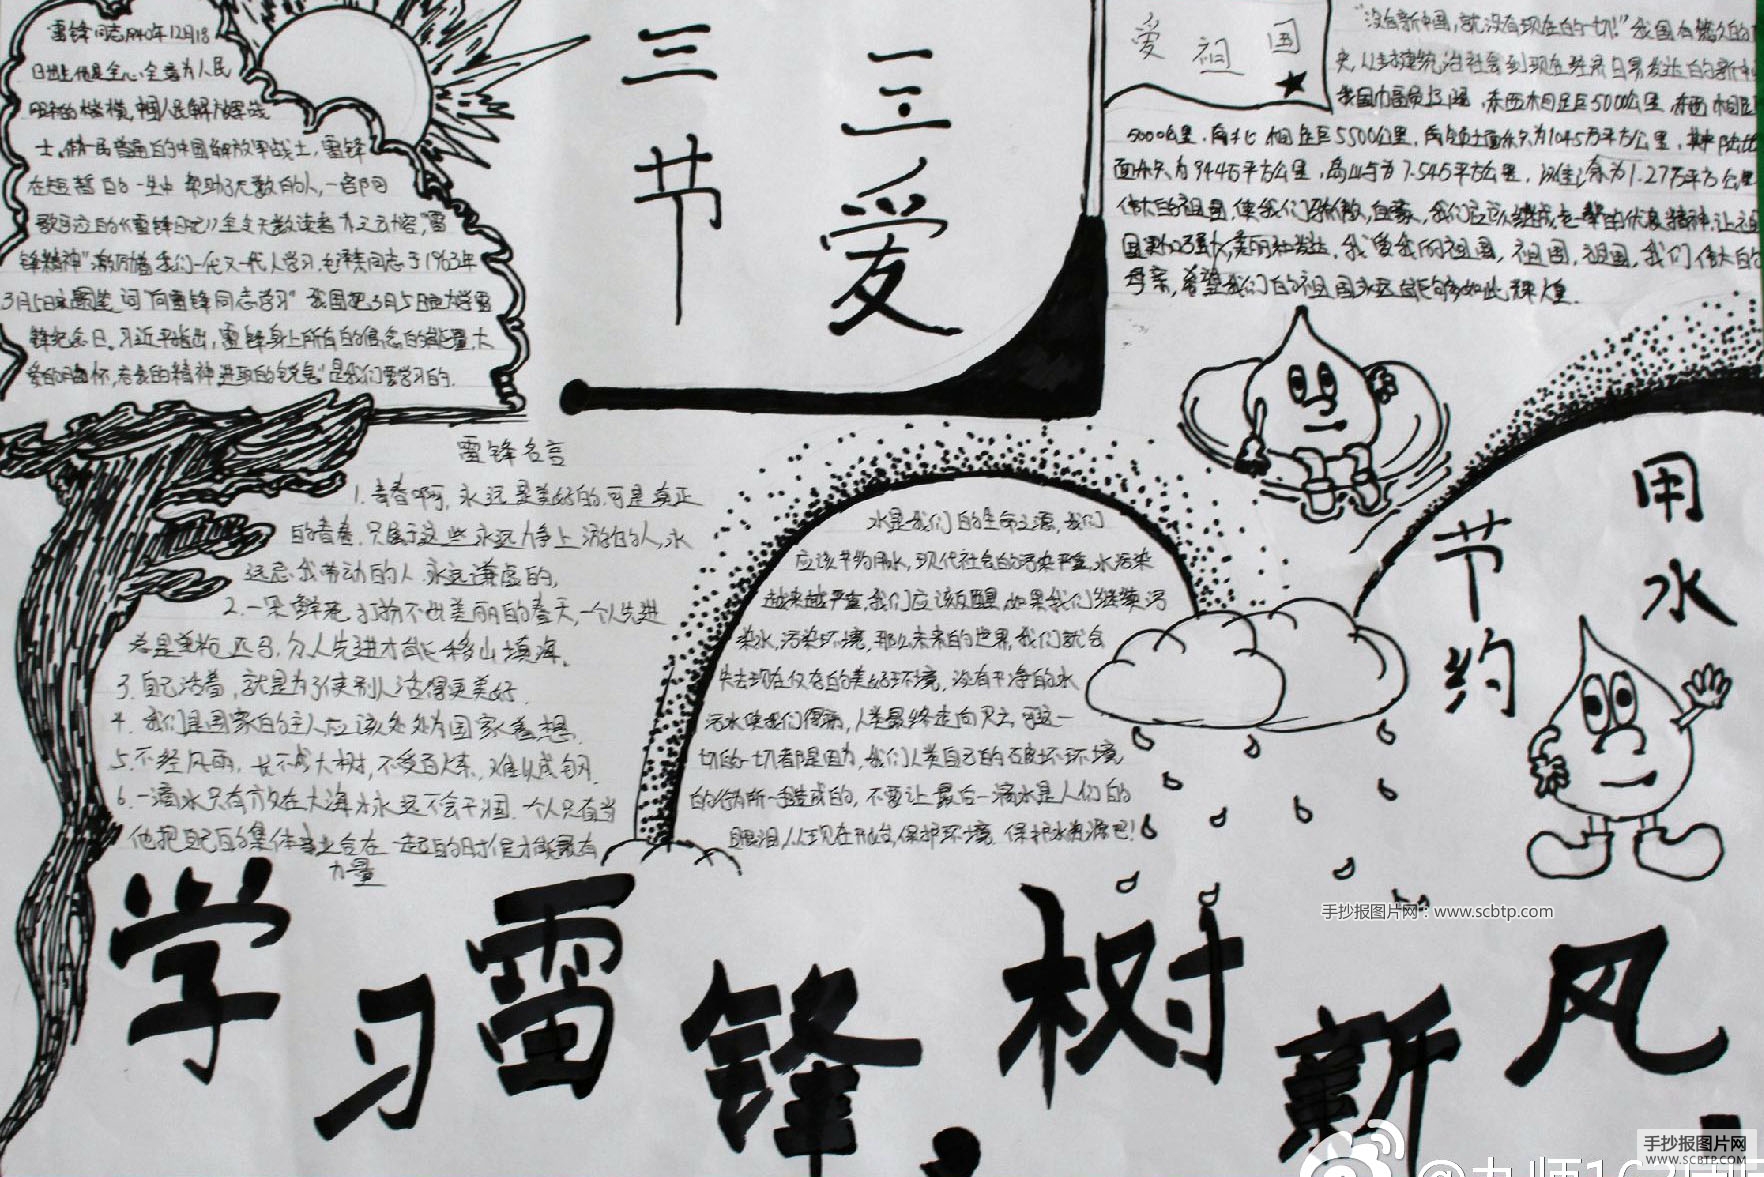 雷锋同志1940年12月18
日出生他是全心全意为人民
士。作为一民普通的中国解放军战士，雷锋
在短暂的一生中帮助了无数的人，一部
锋精神"激励着我们一代又一代人学习，毛泽东同志于1963年
3月5日题词"向雷锋同志学习"我国把3月5日定为学雷
锋纪念日。习近平指出，雷锋身上所有的信念的能量、大
爱的胸怀，忘我的精神进取的锐气"是我们要学习的.
三节
三爱
爱祖国
"没有新中国，就没有现在的一切!"我国有悠久的
史，从封建统治社会到现在经济日异发达的新中
我国幅员辽阔，东西相距5000公里，东西相距
5000公里，南北相距5500公里，
面积为944万平方公里，
伟大的祖国，使我们骄傲，自豪，我们应该继承老一辈的优良精神，让
国更加强大，美丽和发达，我爱我的祖国，祖国，祖国，我们伟大的
母亲，希望我们的祖国永远能够如此辉煌.
雷锋名言
1.青春啊，永远是美好的，可是真正
的青春，只属于这些永远力争上游的人，永
远忘我劳动的人，永远谦虚的，
2.一朵鲜花打扮不出美丽的春天，一个人先进
总是单枪匹马，众人先进才能移山填海。
3.自己活着，就是为了使别人活得更美好.
4.我们是国家的主人应该处处为国家着想.
5.不经风雨，长不成大树，不受百炼，难以成钢.
6.一滴水只有放在大海才永远不会干涸.一个人只有当
他把自己的集体事业合在一起的时候才能最有
力量
水是我们的生命之源，我们
应该节约用水，现代社会的污染严重，水污染
越来越严重，我们应该反醒，如果我们继续污
染水，污染环境，那么未来的世界，我们就会
失去现在仅存的美好环境，没有干净的水
污水使我们得病，人类最终走向灭亡，可这一
切的一切者都是因为，我们人类自己的破坏环境
的行为所一手造成的，不要让最后一滴水是人们的
眼泪，从现在开始，保护环境.保护水资源吧!
节约
用水
学习雷锋，树新风.
手抄报图片网：www.scbtp.com
手抄报图片网
WWW.SCBTP.COM